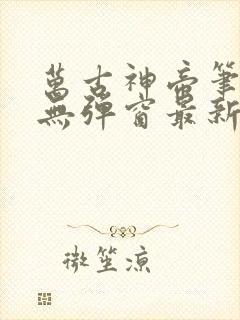 萬古神帝筆
無彈窗最新
微笙涼